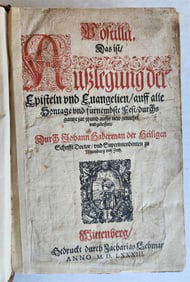 Postilla,
Das ist/
Außlegung der
Episteln vnd Euangelien/ auff alle
Sontage vnd fürnembste Fest/ durchs
gantze jar
Durch Johann Haberman der Heiligen
Schrifft Doctor/ vnd Superintendenten zu
Naumburg vnd Zeitz.
Wittenberg/
Gedruckt durch Zacharias Lehman
ANNO M.D. LXXXIII.